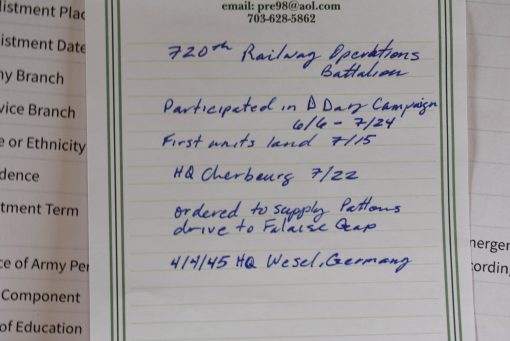 listment Plac
email: pre98@aol.com
703-628-5862
istment Date
ny Branch
vice Branch
e or Ethnicity
dence
tment Term
ce of Army Per
Component
of Education
720th Railway Operations
Battalion
Participated in D Day Campaign
6/6 - 7/24
First units land 7/15
HQ Cherbourg 7/22
ordered to supply Pattons
drive to Falaise Gap
4/4/45 HQ Wesel, Germany
nergen
cordin